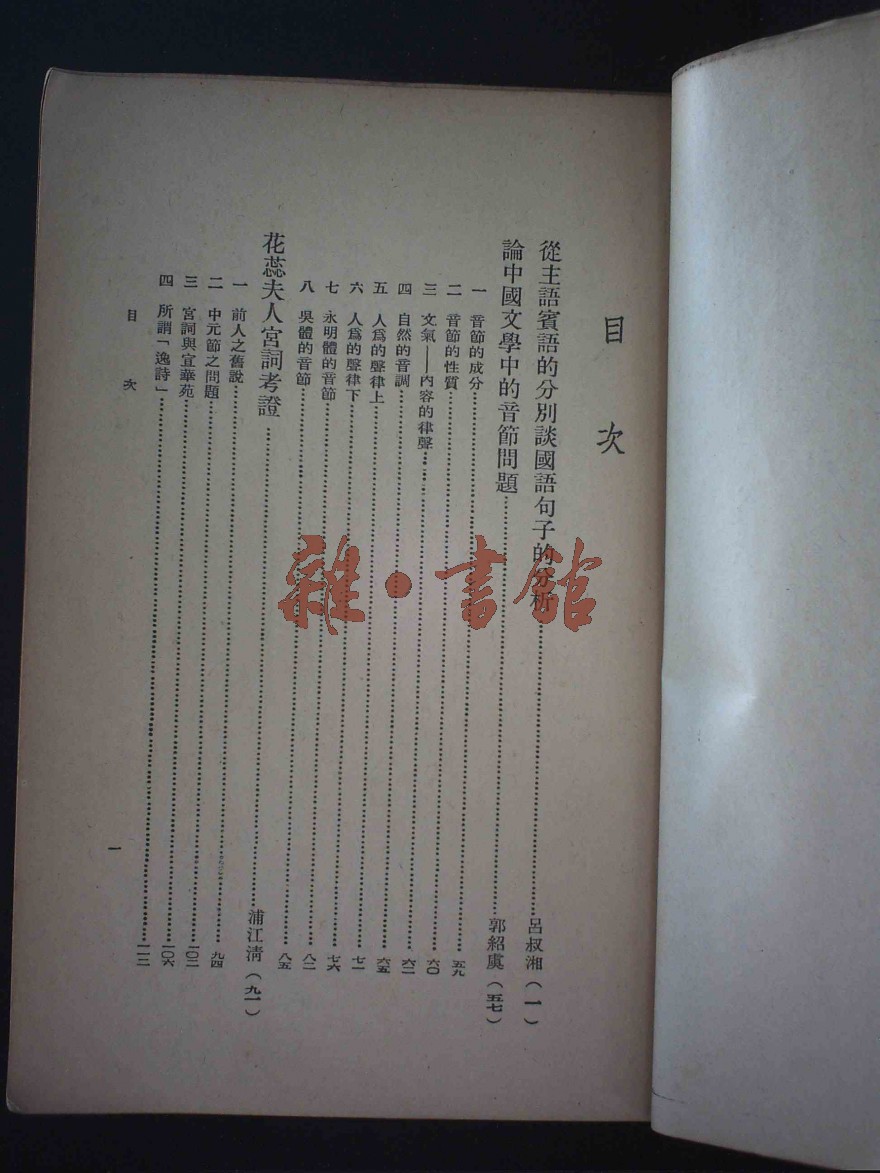 目次
從主語賓語的分別談國語句子的分析……呂叔湘（一）
論中國文學中的音節問題……郭紹虞（五七）
一 音節的成分……五九
二 音節的性質……六〇
三 文氣——內容的律聲……六二
四 自然的音調……六五
五 人爲的聲律上……七一
六 人爲的聲律下……七六
七 永明體的音節……八二
八 吳體的音節……八五
花蕊夫人宮詞考證……浦江清（九一）
一 前人之舊說……九四
二 中元節之問題……一〇二
三 宮詞與宣華苑……一〇六
四 所謂「逸詩」……一一三
目次
一
雜·書館